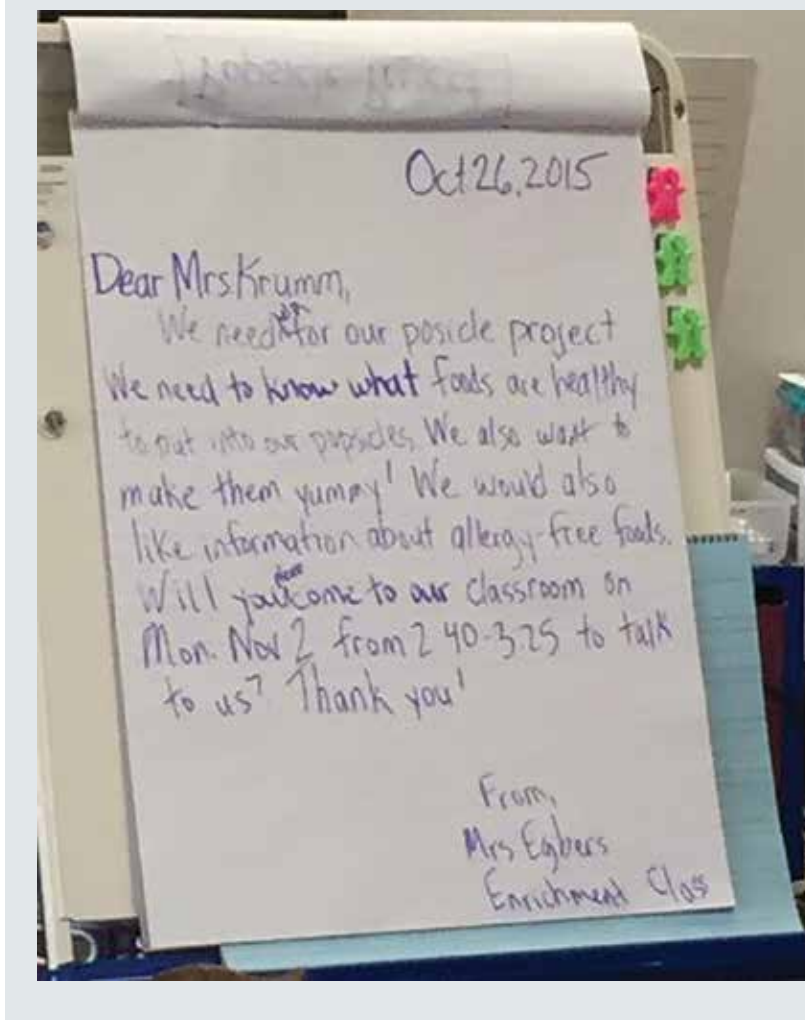 Oct 26, 2015
Dear Mrs Krumm,
We need for our posicle project
We need to know what foods are healthy
to put into our popsicles. We also want to
make them yummy! We would also
like information about allergy-free foods.
Will you come to our classroom on
Mon. Nov 2 from 2:40-3:25 to talk
to us? Thank you!
From,
Mrs Egbers
Enrichment Class